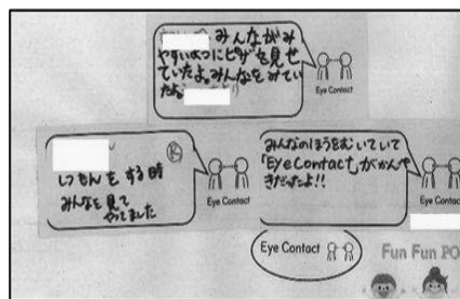 みんながみ
やすいようにピザを見せ
ていたよ。みんなをみてい
たよ
Eye Contact
しつもんをする時
みんなを見て
やってました
Eye Contact
みんなのほうをむいていて
「Eye Contact」がかんぺ
きだったよ!!
Eye Contact
Eye Contact
Fun Fun PO